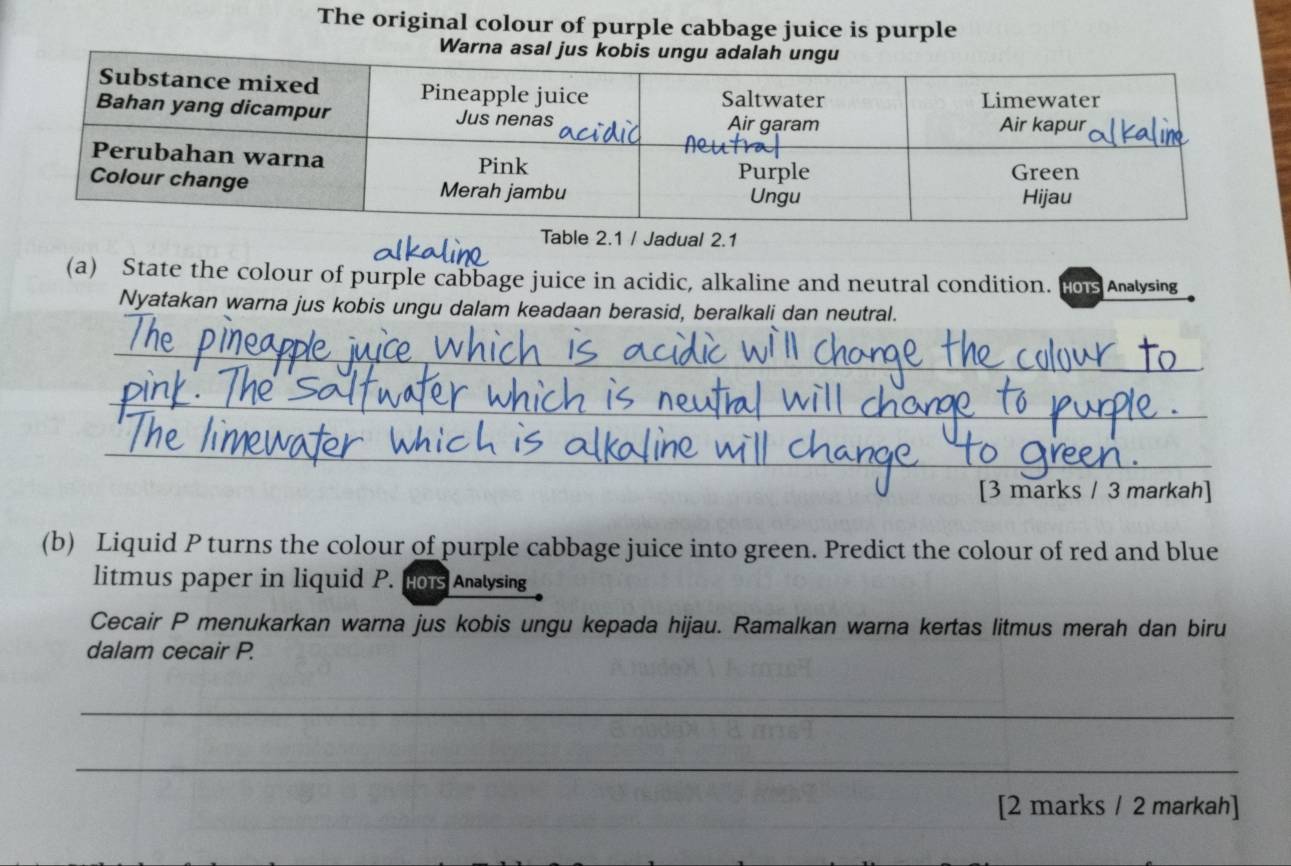 The original colour of purple cabbage juice is purple
Warna asal jus kobis ungu adalah ungu
Substance mixed Pineapple juice Saltwater Limewater
Bahan yang dicampur Jus nenas acidic Air garam neutral Air kapur alkaline
Perubahan warna Pink Purple Green
Colour change Merah jambu Ungu Hijau
Table 2.1 / Jadual 2.1
alkaline
(a) State the colour of purple cabbage juice in acidic, alkaline and neutral condition. HOTS Analysing
Nyatakan warna jus kobis ungu dalam keadaan berasid, beralkali dan neutral.
The pineapple juice which is acidic will change the colour to
pink. The saltwater which is neutral will change to purple.
The limewater which is alkaline will change to green.
[3 marks / 3 markah]
(b) Liquid P turns the colour of purple cabbage juice into green. Predict the colour of red and blue
litmus paper in liquid P. HOTS Analysing
Cecair P menukarkan warna jus kobis ungu kepada hijau. Ramalkan warna kertas litmus merah dan biru
dalam cecair P.
[2 marks / 2 markah]